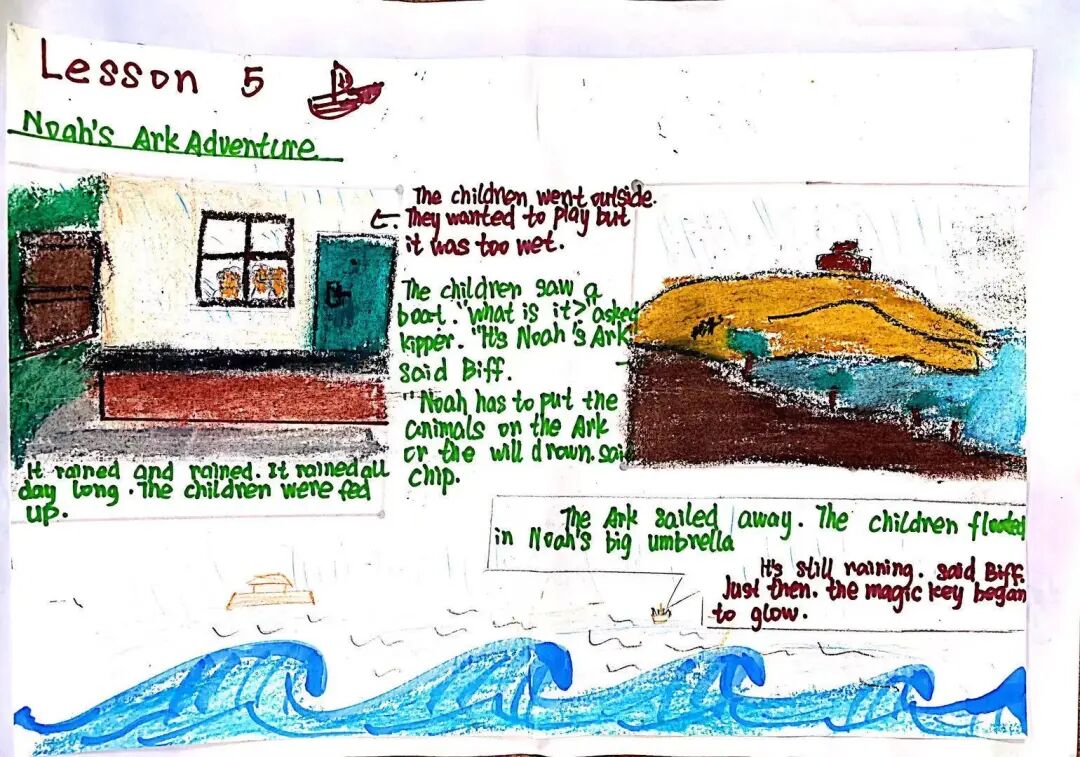 Lesson 5
Noah's Ark Adventure
It rained and rained. It rained all
day long. The children were fed
up.
The children went outside.
They wanted to play but
it was too wet.
The children saw a
boat. "what is it?" asked
kipper. "It's Noah's Ark
said Biff.
"Noah has to put the
animals on the Ark
or the will drown. said
chip.
The Ark sailed away. The children floated
in Noah's big umbrella
It's still raining. said Biff.
Just then. the magic key began
to glow.